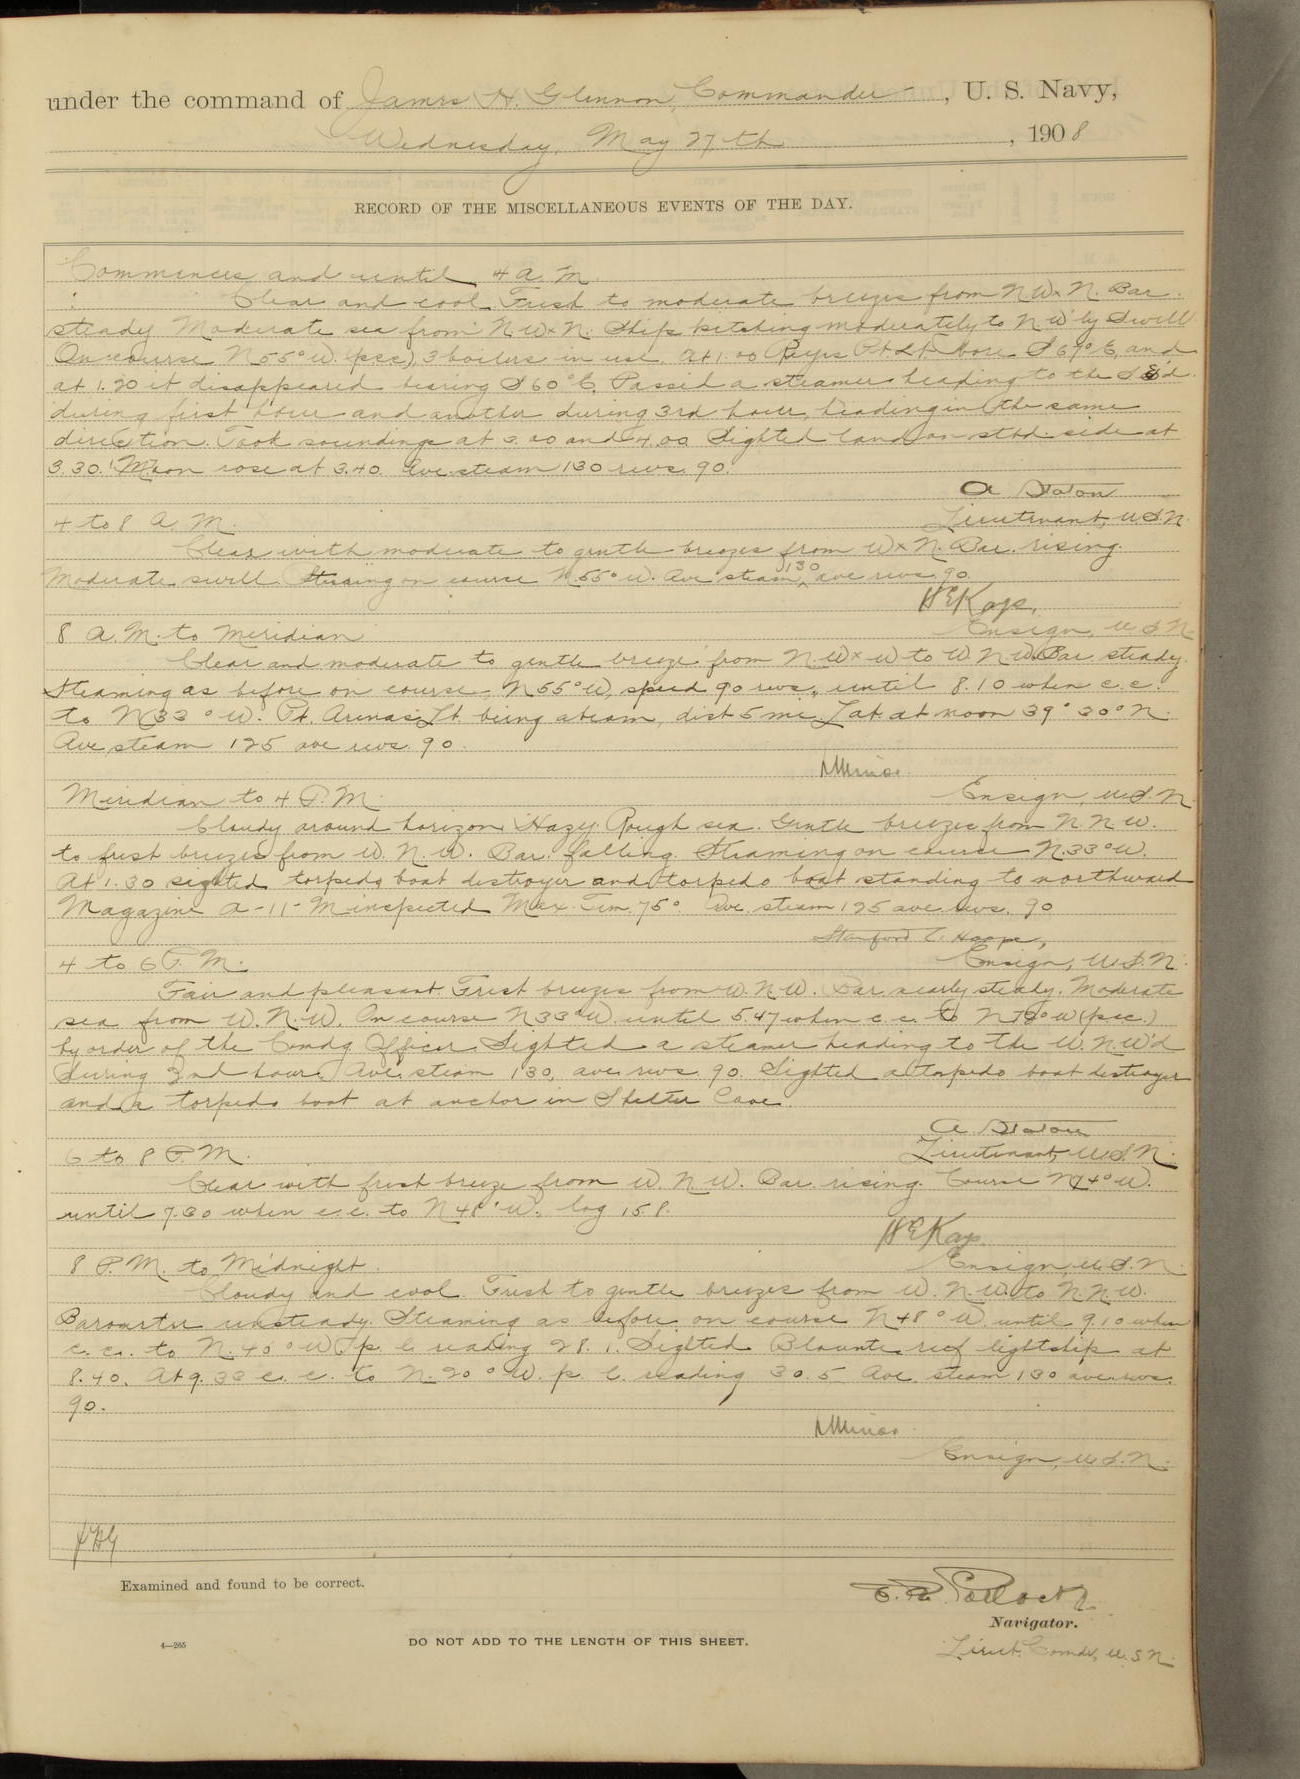 under the command of James H. Glennon, Commander, U. S. Navy,
Wednesday, May 27th, 1908
RECORD OF THE MISCELLANEOUS EVENTS OF THE DAY.
Commences and until 4 a. m.
Clear and cool. Fresh to moderate breezes from N W x N. Bar.
steady Moderate sea from N W x N. Ship pitching moderately to N W'ly Swell
On course N 55° W. (psc) 3 boilers in use. At 1.00 Reyes Pt Lt bore S 67° E, and
at 1.20 it disappeared bearing S 60° E. Passed a steamer heading to the S E'd
during first hour and another during 3rd hour, heading in the same
direction. Took soundings at 3.00 and 4.00 Sighted land on stbd. side at
3.30. Moon rose at 3.40. Ave. steam 130 revs. 90.
A Staton
Lieutenant, U.S.N.
4 to 8 A. M.
Clear with moderate to gentle breezes from W x N. Bar. rising.
Moderate swell. Steaming on course N 55° W. Ave steam 130, ave revs. 90
H E Kays,
Ensign, U.S.N.
8 A. M. to Meridian
Clear and moderate to gentle breeze from N. W x W to W. N W. Bar. steady.
Steaming as before on course N 55° W, speed 90 revs, until 8.10 when c. c.
to N 33° W. Pt. Arenas Lt. being abeam, dist 5 mi. Lat. at noon 39° 30° N.
Ave steam 125 ave revs. 90.
Ensign, U.S.N.
Meridian to 4 P. M.
Cloudy around horizon. Hazy. Rough sea. Gentle breezes from N. N. W.
to fresh breezes from W. N. W. Bar. falling. Steaming on course N. 33° W.
At 1.30 sighted torpedo boat destroyer and torpedo boat standing to northward
Magazine A-11-M inspected Max. Tem. 75°. Ave. steam 125 ave. revs. 90
Stanford C. Hooper,
Ensign, U.S.N.
4 to 6 P. M.
Fair and pleasant. Fresh breezes from W. N. W. Bar. nearly steady. Moderate
sea from W. N. W. On course N 33° W. until 5.47 when c. c. to N ° W (psc.)
by order of the Comdg Officer. Sighted a steamer heading to the W. N. W'd
during 2nd hour. Ave. steam 130, ave. revs. 90. Sighted a torpedo boat destroyer
and a torpedo boat at anchor in Shelter Cove.
A Staton
Lieutenant, U.S.N.
6 to 8 P. M.
Clear with fresh breeze from W. N. W. Bar. rising. Course N 74° W.
until 7.30 when c. c. to N 48° W., log 15.8.
H E Kays
Ensign, U.S.N.
8 P. M. to Midnight.
Cloudy and cool. Fresh to gentle breezes from W. N. W. to N. N. W.
Barometer unsteady. Steaming as before on course N 48° W. until 9.10 when
c. c. to N. 40° W p. l. reading 28.1. Sighted Blounts reef lightship at
8.40. At 9.33 c. c. to N. 20° W. p. l. reading 30.5 Ave. steam 130 ave. revs.
90.
Ensign, U.S.N.
JHG
Examined and found to be correct.
E. R. Pollock
Navigator.
Lieut. Comdr, U.S.N.
4—265
DO NOT ADD TO THE LENGTH OF THIS SHEET.